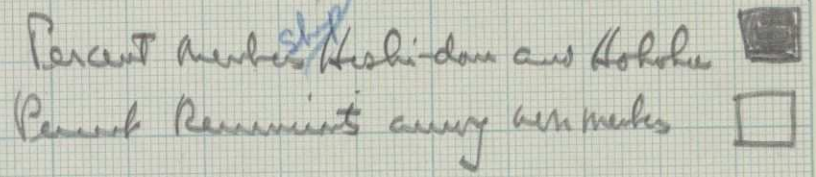 Percent membership Hoshi-dan and Hokoku
Percent Renunciants among non members